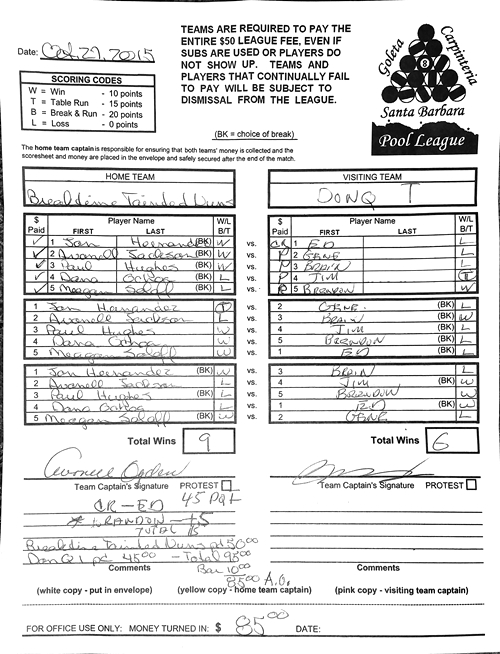 TEAMS ARE REQUIRED TO PAY THE
ENTIRE $50 LEAGUE FEE, EVEN IF
SUBS ARE USED OR PLAYERS DO
NOT SHOW UP. TEAMS AND
PLAYERS THAT CONTINUALLY FAIL
TO PAY WILL BE SUBJECT TO
DISMISSAL FROM THE LEAGUE.
Date: Oct. 29, 2015
SCORING CODES
W = Win - 10 points
T = Table Run - 15 points
B = Break & Run - 20 points
L = Loss - 0 points
(BK = choice of break)
Goleta Carpinteria
8
Santa Barbara
Pool League
The home team captain is responsible for ensuring that both teams' money is collected and the
scoresheet and money are placed in the envelope and safely secured after the end of the match.
HOME TEAM VISITING TEAM
DONQ T
$ Paid Player Name FIRST LAST W/L B/T
$ Paid Player Name FIRST LAST W/L B/T
✓ 1 Jan Hernandez (BK) W vs. CR 1 ED L
✓ 2 Avanell Jackson (BK) W vs. P 2 GENE L
✓ 3 Paul Hughes (BK) W vs. P 3 BRAIN L
✓ 4 Dana (BK) L vs. P 4 JIM T
✓ 5 Meagan (BK) L vs. P 5 BRENDON W
1 Jan Hernandez T vs. 2 GENE (BK) L
2 Avanell Jackson L vs. 3 BRAIN (BK) W
3 Paul Hughes W vs. 4 JIM (BK) L
4 Dana W vs. 5 BRENDON (BK) L
5 Meagan W vs. 1 ED (BK) L
1 Jan Hernandez (BK) W vs. 3 BRAIN L
2 Avanell Jackson L vs. 4 JIM (BK) W
3 Paul Hughes (BK) L vs. 5 BRENDON W
4 Dana L vs. 1 ED (BK) W
5 Meagan (BK) W vs. 2 GENE L
Total Wins 9 Total Wins 6
Avonell Ogden
Team Captain's Signature PROTEST Team Captain's Signature PROTEST
CR - ED 45
* BRANDON - 15
TOTAL
pd 50.00
Don Q 45.00 - Total 95.00
Bar 10.00
85.00 A.O.
Comments Comments
(white copy - put in envelope) (yellow copy - home team captain) (pink copy - visiting team captain)
FOR OFFICE USE ONLY: MONEY TURNED IN: $ 85.00 DATE: